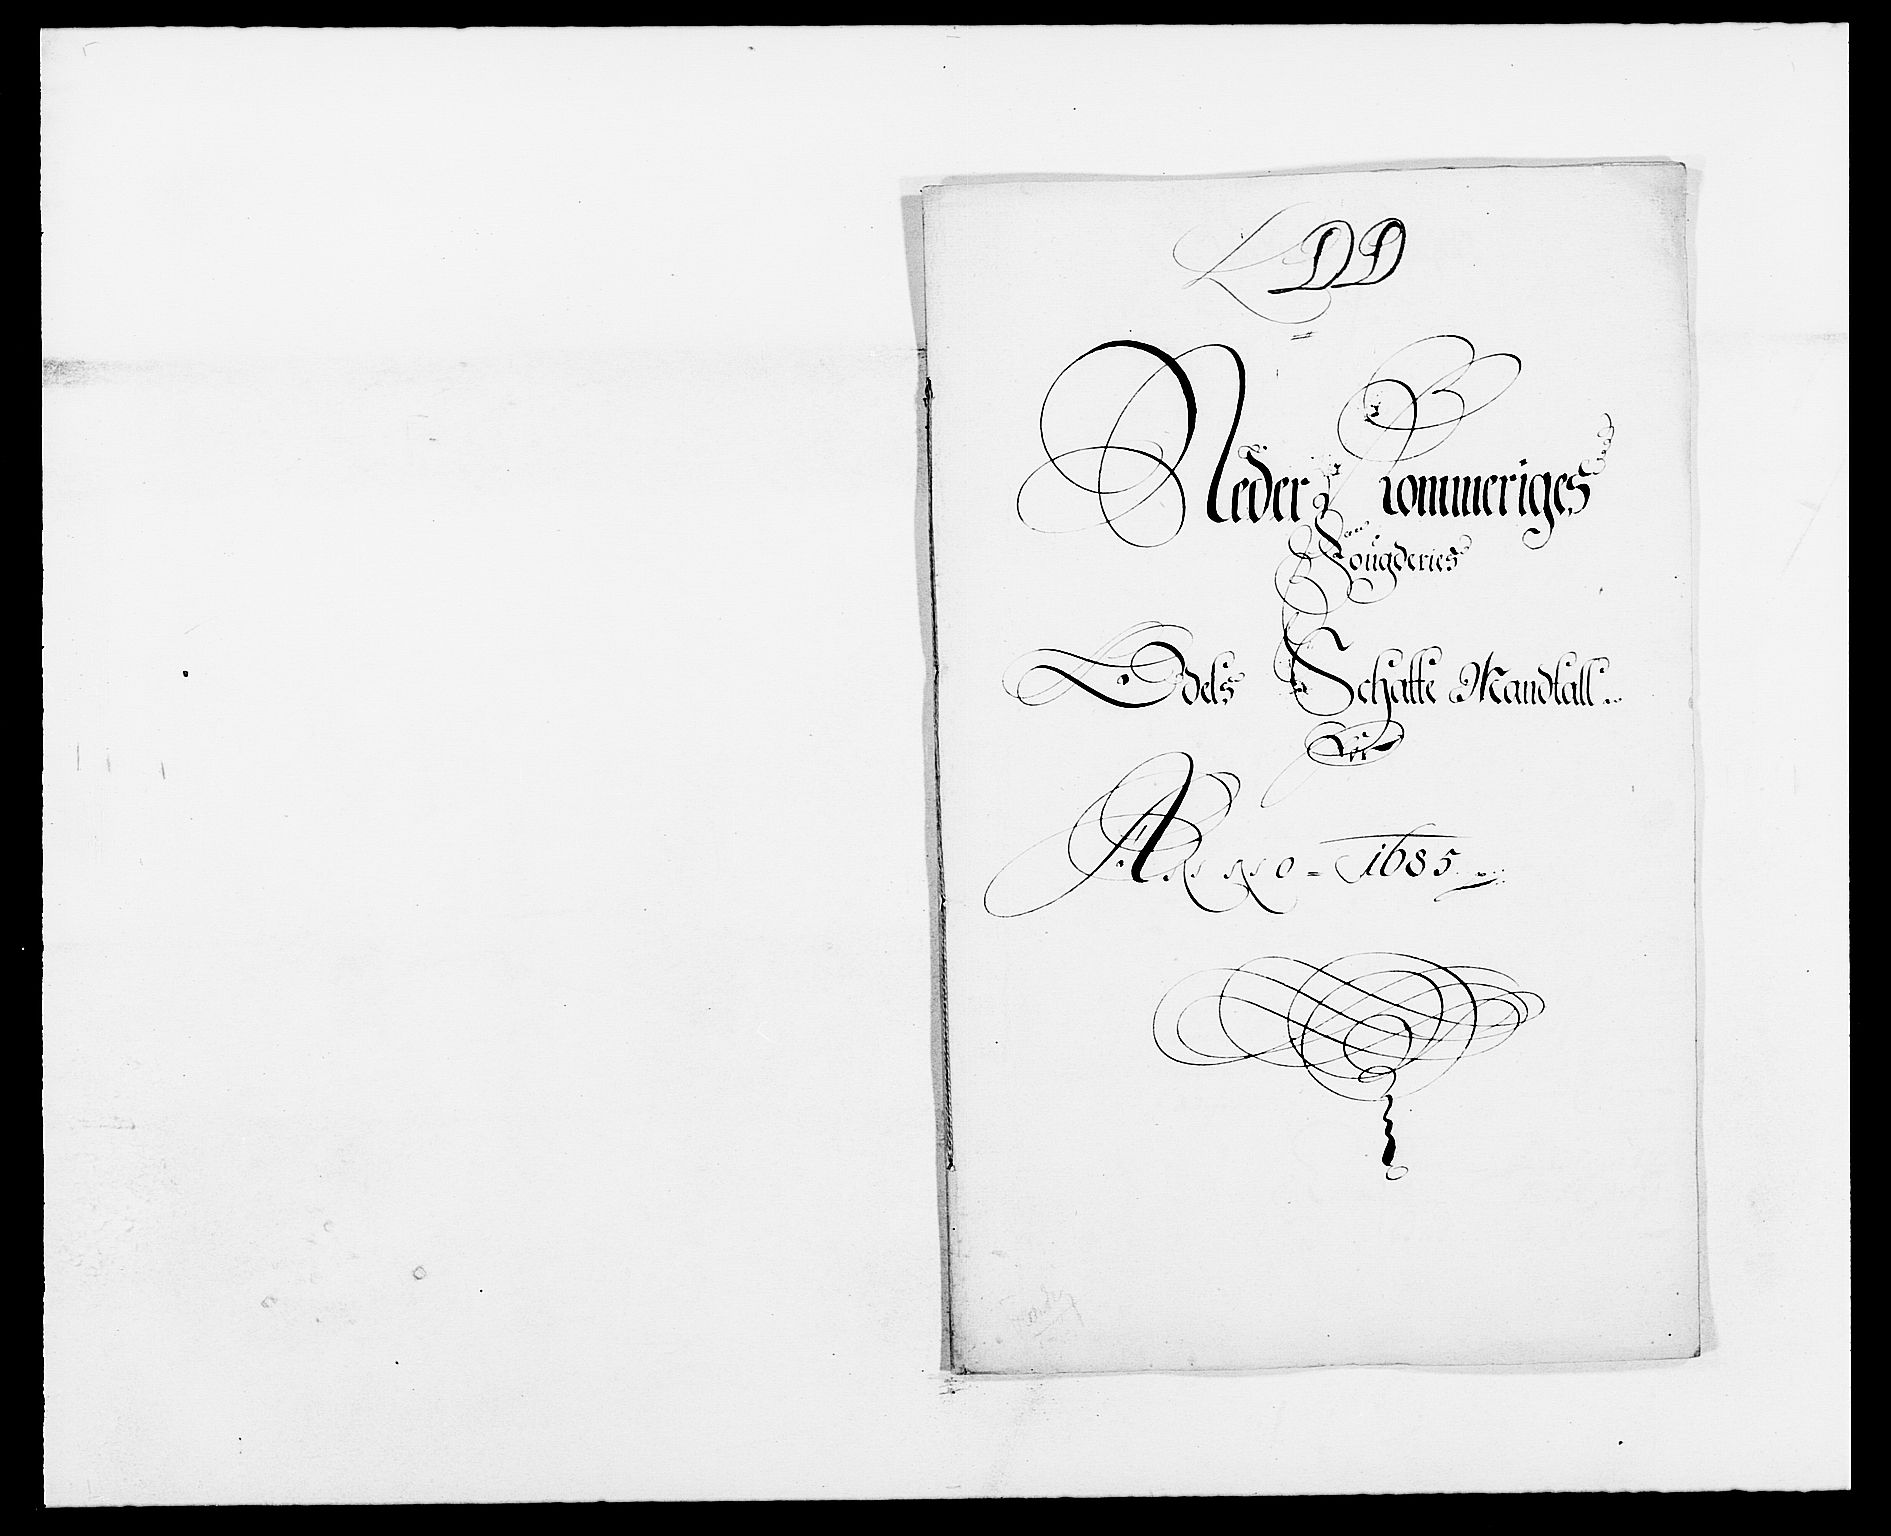 LDD
Neder Rommeriges
Fougderies
Odels Schatte Mandtall
Pro
Anno = 1685